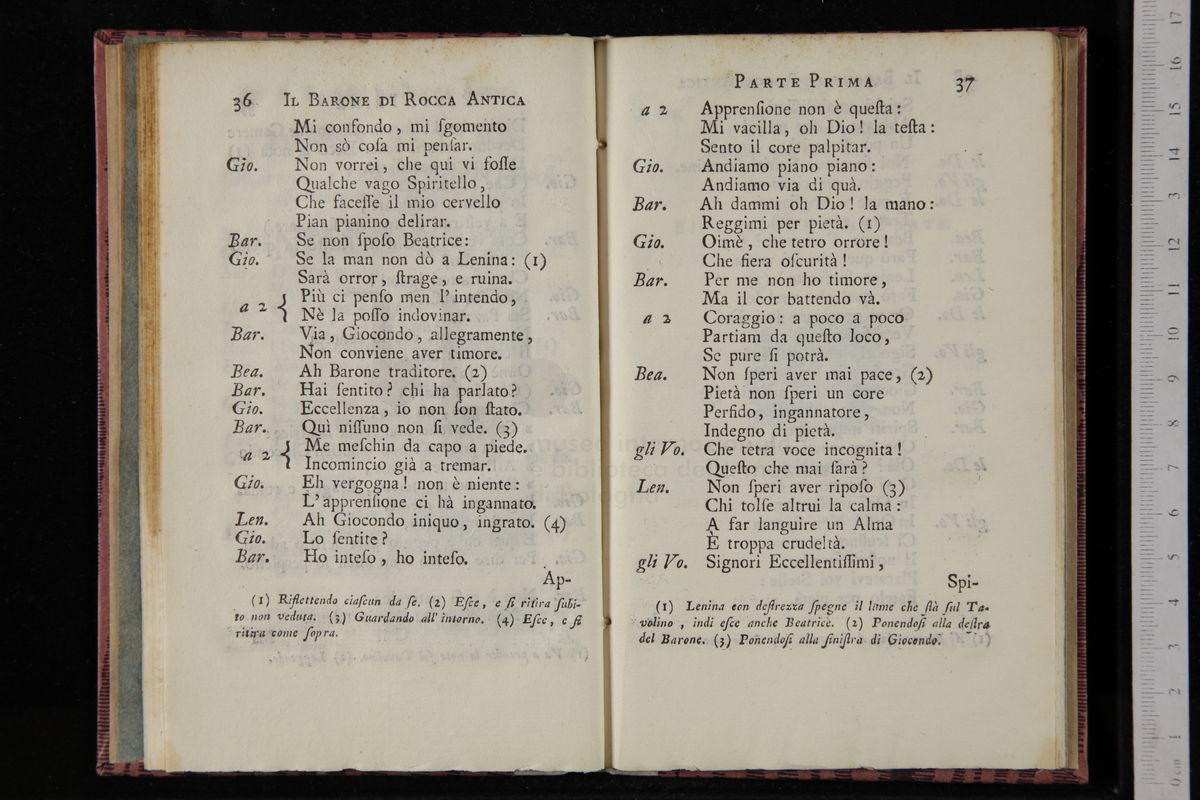 36 IL BARONE DI ROCCA ANTICA
Mi confondo, mi ſgomento
Non sò coſa mi penſar.
Gio. Non vorrei, che qui vi foſſe
Qualche vago Spiritello,
Che faceſſe il mio cervello
Pian pianino delirar.
Bar. Se non ſpoſo Beatrice:
Gio. Se la man non dò a Lenina: (1)
Sarà orror, ſtrage, e ruina.
a 2 { Più ci penſo men l'intendo,
Nè la poſſo indovinar.
Bar. Via, Giocondo, allegramente,
Non conviene aver timore.
Bea. Ah Barone traditore. (2)
Bar. Hai ſentito? chi ha parlato?
Gio. Eccellenza, io non ſon ſtato.
Bar. Quì niſſuno non ſi vede. (3)
a 2 { Me meſchin da capo a piede.
Incomincio già a tremar.
Gio. Eh vergogna! non è niente:
L'apprenſione ci hà ingannato.
Len. Ah Giocondo iniquo, ingrato. (4)
Gio. Lo ſentite?
Bar. Ho inteſo, ho inteſo.
Ap-
(1) Riflettendo ciaſcun da ſe. (2) Eſce, e ſi ritira ſubi-
to non veduta. (3) Guardando all'intorno. (4) Eſce, e ſi
ritira come ſopra.
PARTE PRIMA 37
a 2 Apprenſione non è queſta:
Mi vacilla, oh Dio! la teſta:
Sento il core palpitar.
Gio. Andiamo piano piano:
Andiamo via di quà.
Bar. Ah dammi oh Dio! la mano:
Reggimi per pietà. (1)
Gio. Oimè, che tetro orrore!
Che fiera oſcurità!
Bar. Per me non ho timore,
Ma il cor battendo và.
a 2 Coraggio: a poco a poco
Partiam da queſto loco,
Se pure ſi potrà.
Bea. Non ſperi aver mai pace, (2)
Pietà non ſperi un core
Perfido, ingannatore,
Indegno di pietà.
gli Vo. Che tetra voce incognita!
Queſto che mai ſarà?
Len. Non ſperi aver ripoſo (3)
Chi tolſe altrui la calma:
A far languire un Alma
È troppa crudeltà.
gli Vo. Signori Eccellentiſſimi,
Spi-
(1) Lenina con deſtrezza ſpegne il lume che ſtà ſul Ta-
volino, indi eſce anche Beatrice. (2) Ponendoſi alla deſtra
del Barone. (3) Ponendoſi alla ſiniſtra di Giocondo.
0 cm 1 2 3 4 5 6 7 8 9 10 11 12 13 14 15 16 17